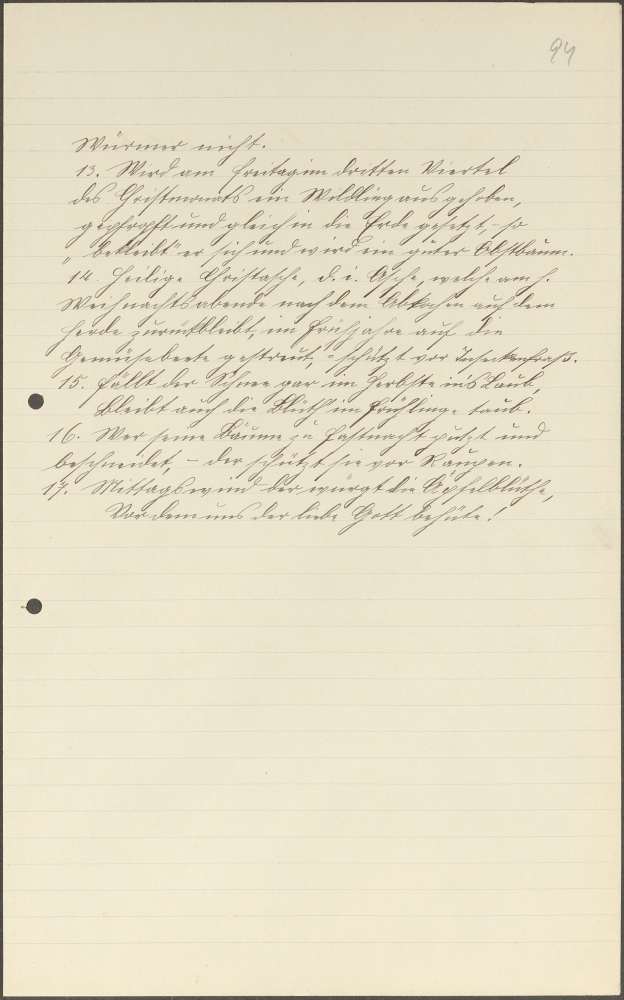 94
Würmer nicht.
13. Wird am Freitag im dritten Viertel
des Christmonats ein Wildling ausgehoben,
gepfropft und gleich in die Erde gesetzt, - so
„bekleibt" er sich und wird ein guter Obstbaum.
14. Heilige Christasche, d. i. Asche, welche am h.
Weihnachtsabende nach dem Abkochen auf dem
Herde zurückbleibt, im Frühjahre auf die
Gemüsebeete gestreut, - schützt vor Insektenfraß.
15. Fällt der Schnee gar im Herbste in's Laub,
Bleibt auch die Blüth' im Frühlinge taub.
16. Wer seine Bäume zu Fastnacht putzt und
beschneidet, - der schützt sie vor Raupen.
17. Mittagswind der würgt die Äpfelblüthe,
Vor dem uns der liebe Gott behüte!